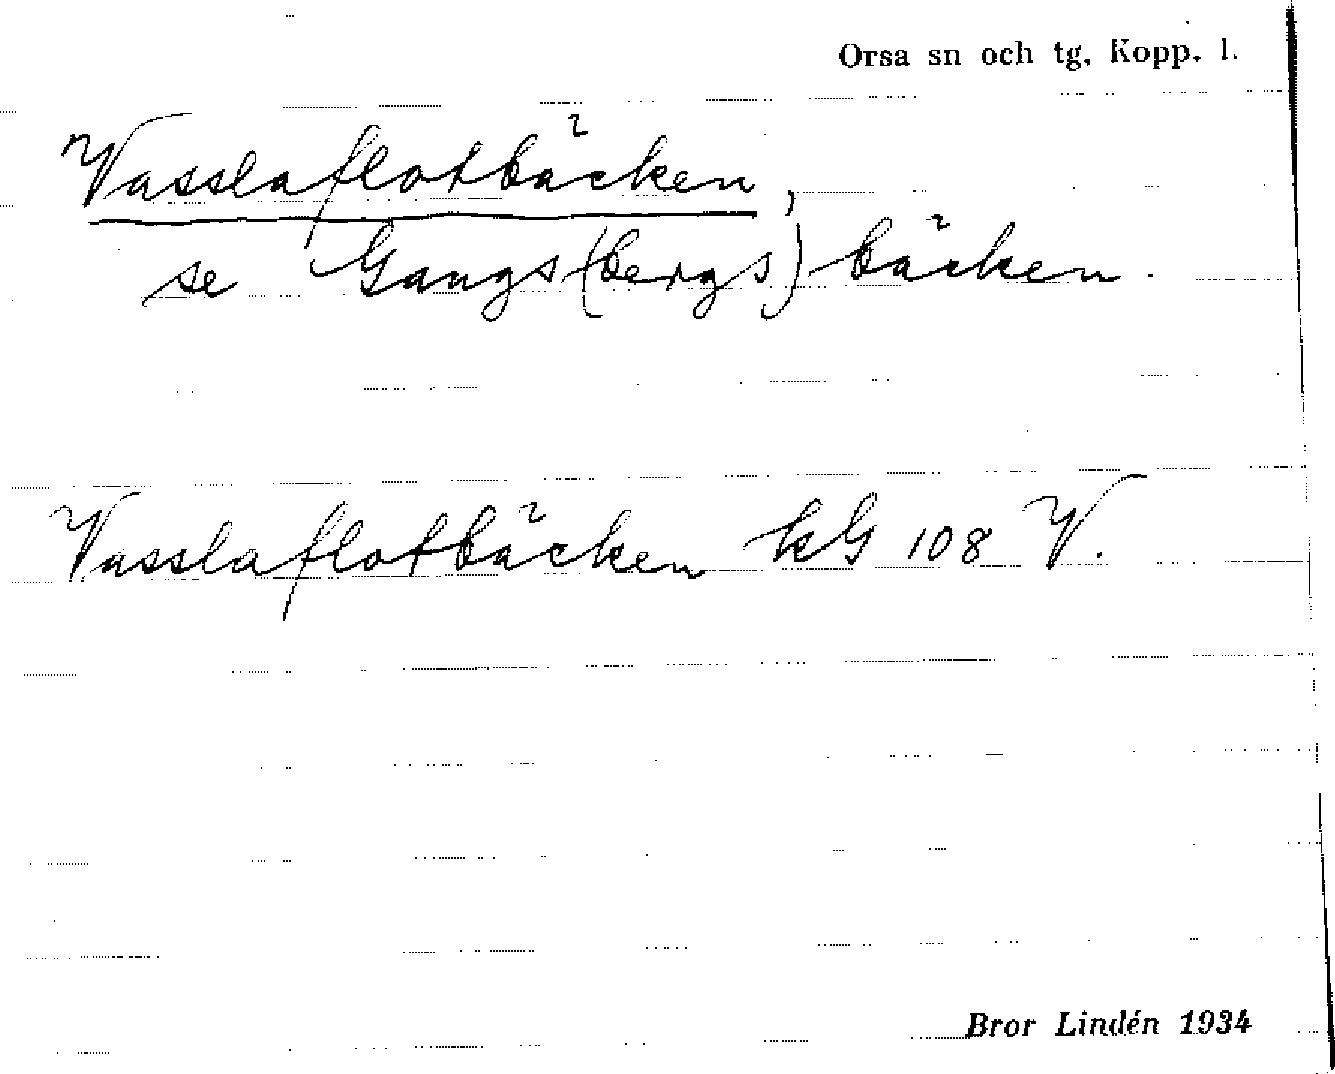 Orsa sn och tg. Kopp. l.
Vasslaflotbäcken,
se Gangs(bergs)bäcken.
Vasslaflotbäcken kG 108 V.
Bror Lindén 1934